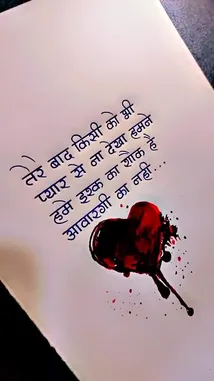 तेरे बाद किसी को भी
प्यार से ना देखा हमने
हमे इश्क का शौक है
आवारगी का नहीं....